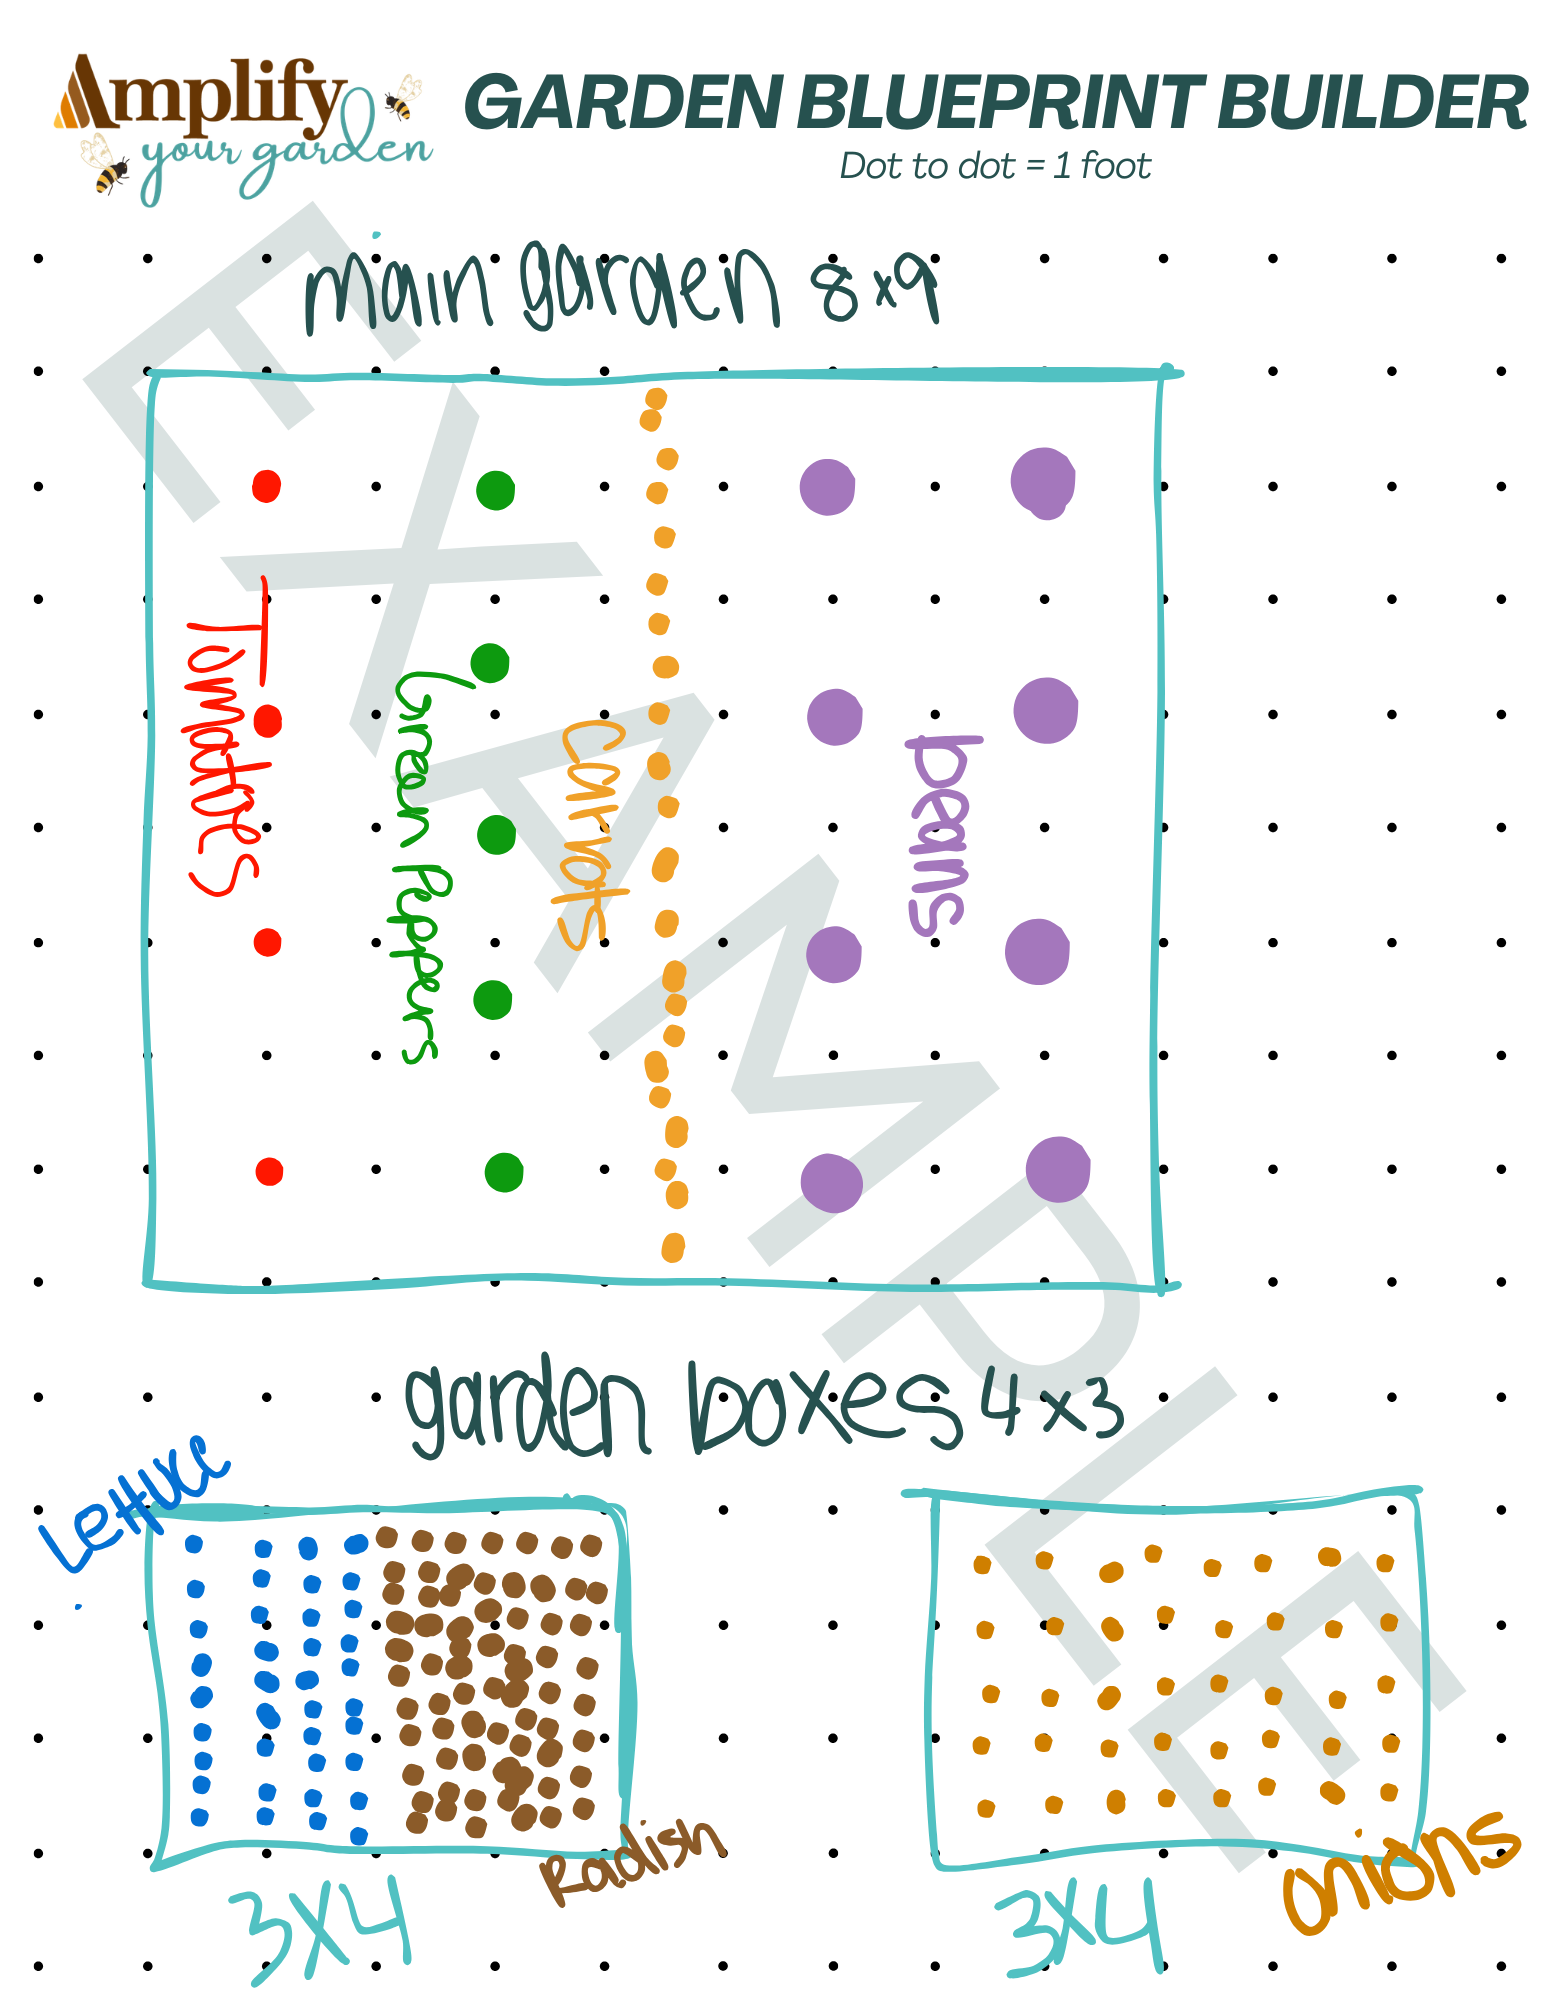 Amplify
your garden
GARDEN BLUEPRINT BUILDER
Dot to dot = 1 foot
main garden 8x9
Tomatoes
Green Peppers
Carrots
beans
EXAMPLE
garden boxes 4x3
Lettuce
Radish
onions
3x4
3x4